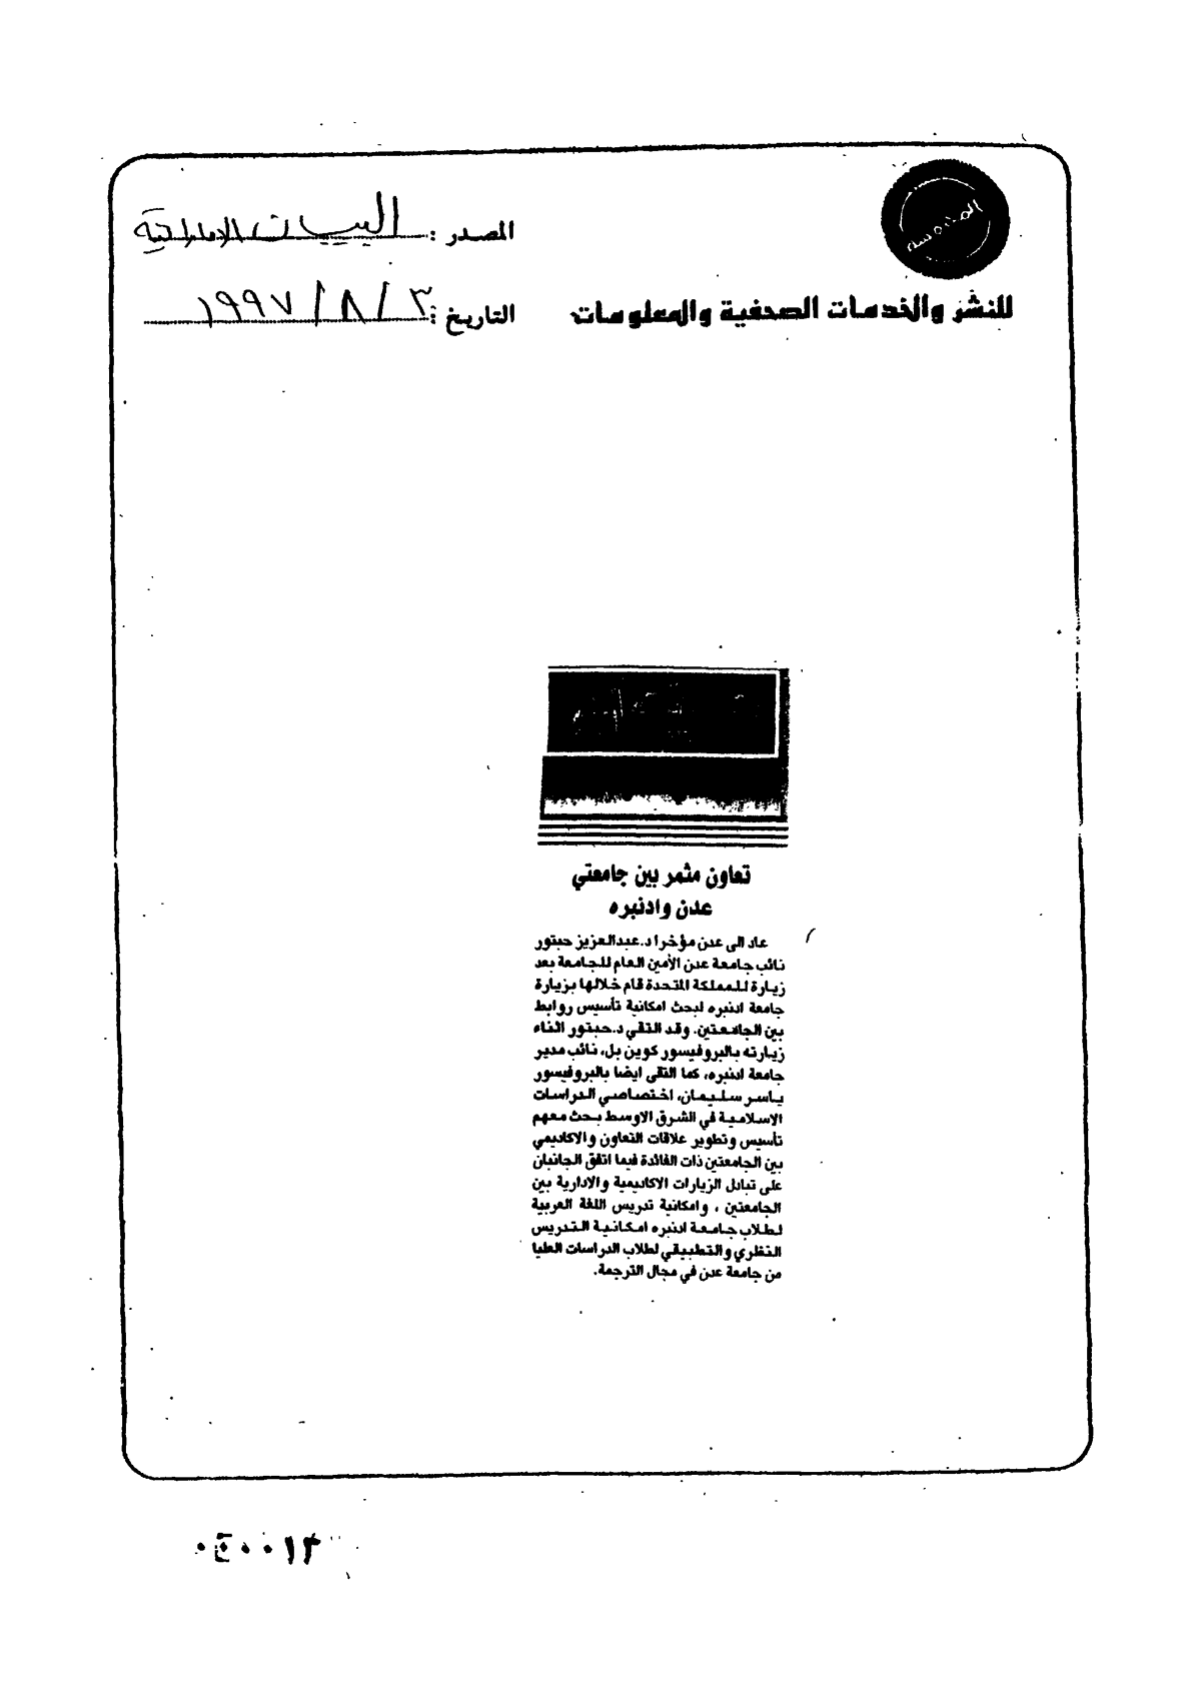 المصدر : البيان الاماراتية
للنشر والخدمات الصحفية والمعلومات
التاريخ : ٣ / ٨ / ١٩٩٧
تعاون مثمر بين جامعتي
عدن وادنبره
عاد الى عدن مؤخرا د.عبدالعزيز حبتور
نائب جامعة عدن الأمين العام للجامعة بعد
زيارة للمملكة المتحدة قام خلالها بزيارة
جامعة ادنبره لبحث امكانية تأسيس روابط
بين الجامعتين. وقد التقي د.حبتور اثناء
زيارته بالبروفيسور كوين بل، نائب مدير
جامعة ادنبره، كما التقى ايضا بالبروفيسور
ياسر سليمان، اختصاصي الدراسات
الاسلامية في الشرق الاوسط بحث معهم
تأسيس وتطوير علاقات التعاون والاكاديمي
بين الجامعتين ذات الفائدة فيما اتفق الجانبان
على تبادل الزيارات الاكاديمية والادارية بين
الجامعتين ، وامكانية تدريس اللغة العربية
لطلاب جامعة ادنبره امكانية التدريس
النظري والتطبيقي لطلاب الدراسات العليا
من جامعة عدن في مجال الترجمة.